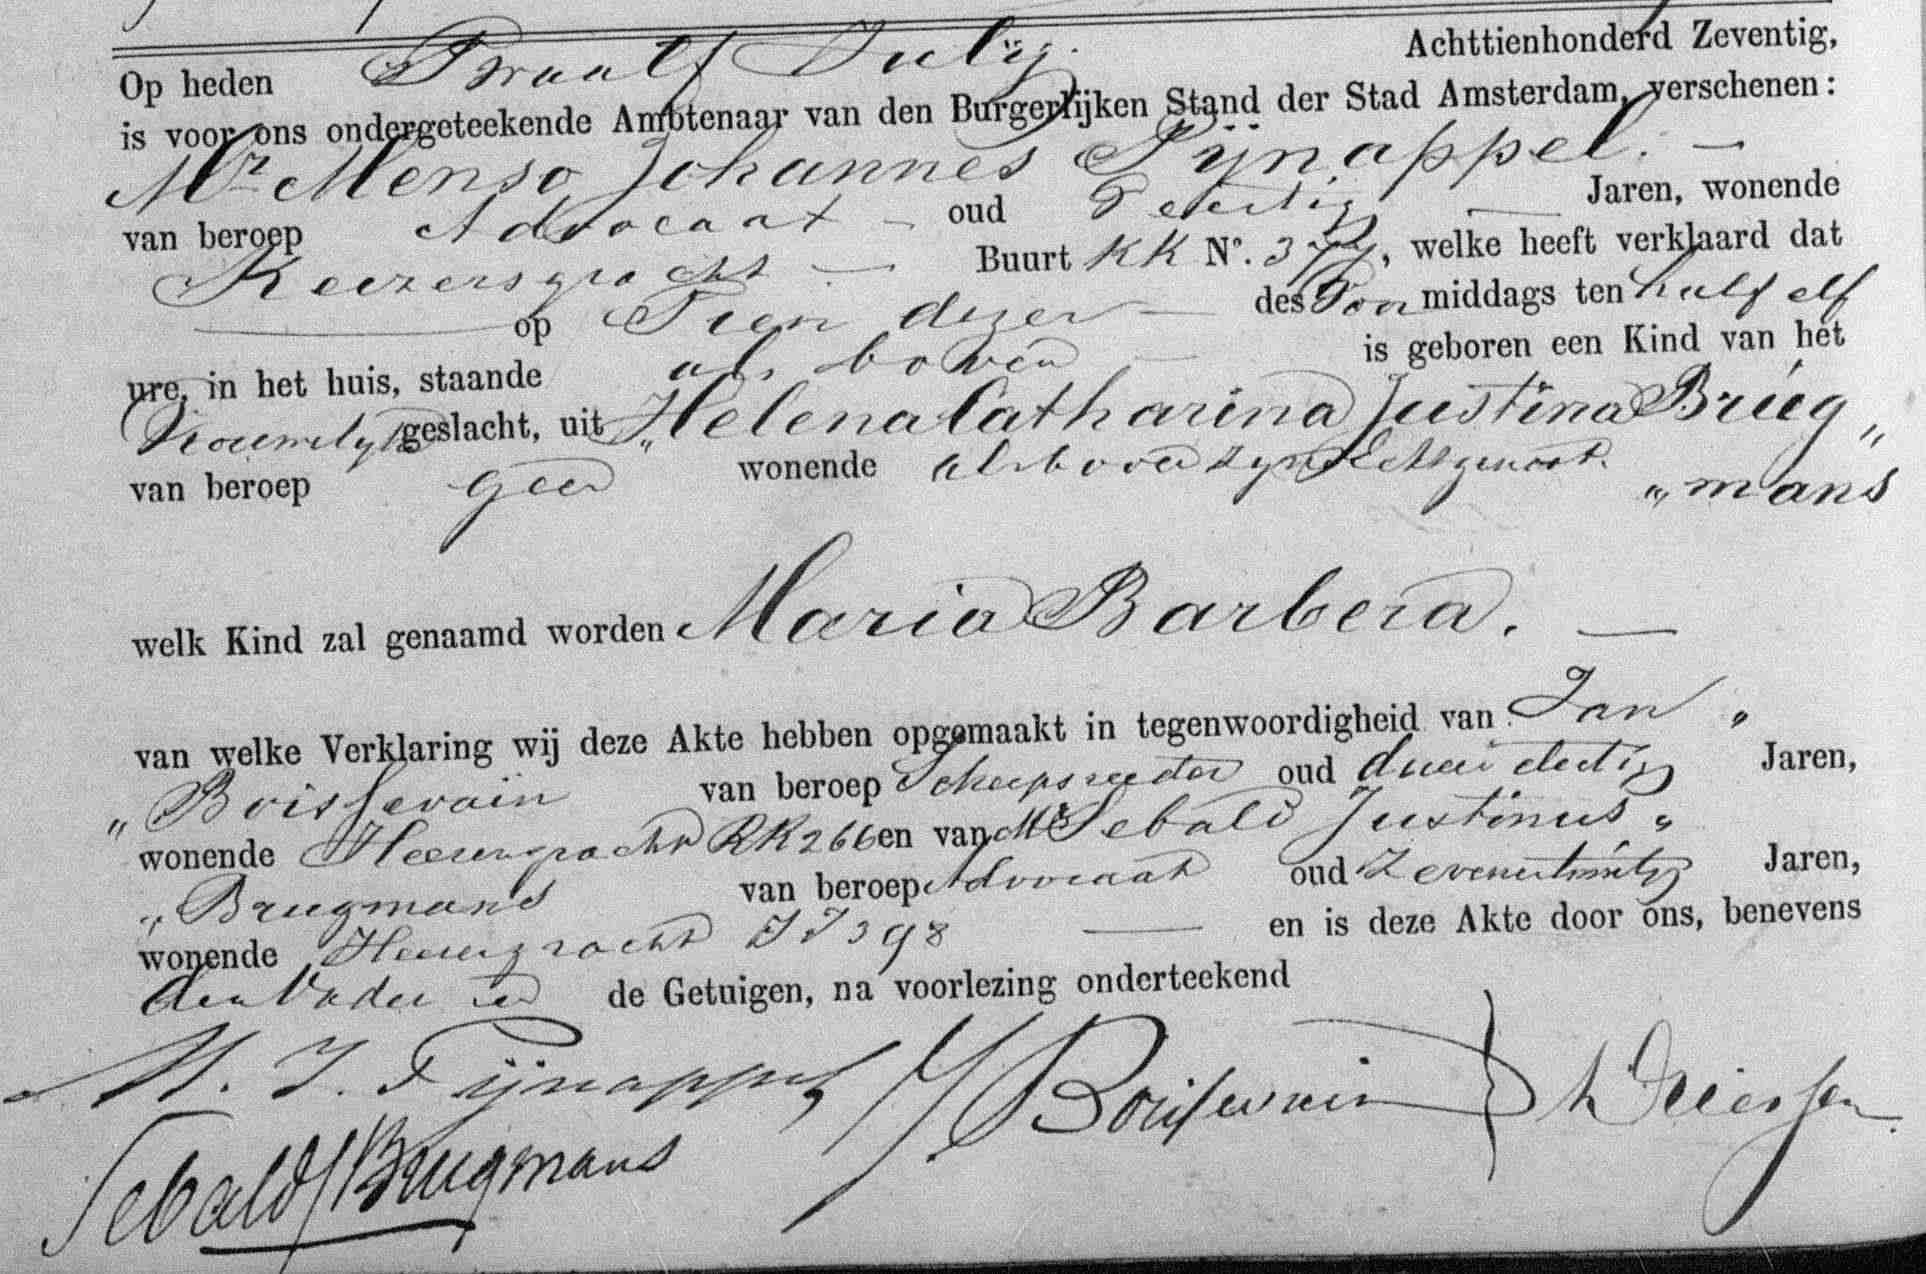 Op heden Twaalf Julij Achttienhonderd Zeventig,
is voor ons ondergeteekende Ambtenaar van den Burgerlijken Stand der Stad Amsterdam, verschenen:
Mr Menso Johannes Pijnappel. —
van beroep Advocaat — oud Veertig — Jaren, wonende
Keizersgracht — Buurt KK No. 377, welke heeft verklaard dat
— op Tien dezer — des Voor middags ten half elf
ure, in het huis, staande als boven — is geboren een Kind van het
Vrouwelijk geslacht, uit Helena Catharina Justina Brug„
„mans
van beroep geen wonende als boven zijn Echtgenoot.
welk Kind zal genaamd worden Maria Barbera. —
van welke Verklaring wij deze Akte hebben opgemaakt in tegenwoordigheid van Jan „
„Boissevain van beroep Scheepsreeder oud drieendertig Jaren,
wonende Heerengracht KK266 en van Mr Sebald Justinus „
„Brugmans van beroep Advocaat oud Zevenentwintig Jaren,
wonende Heerengracht JJ 398 — en is deze Akte door ons, benevens
den Vader en de Getuigen, na voorlezing onderteekend
M. J. Pijnappel J Boissevain
Sebald J Brugmans